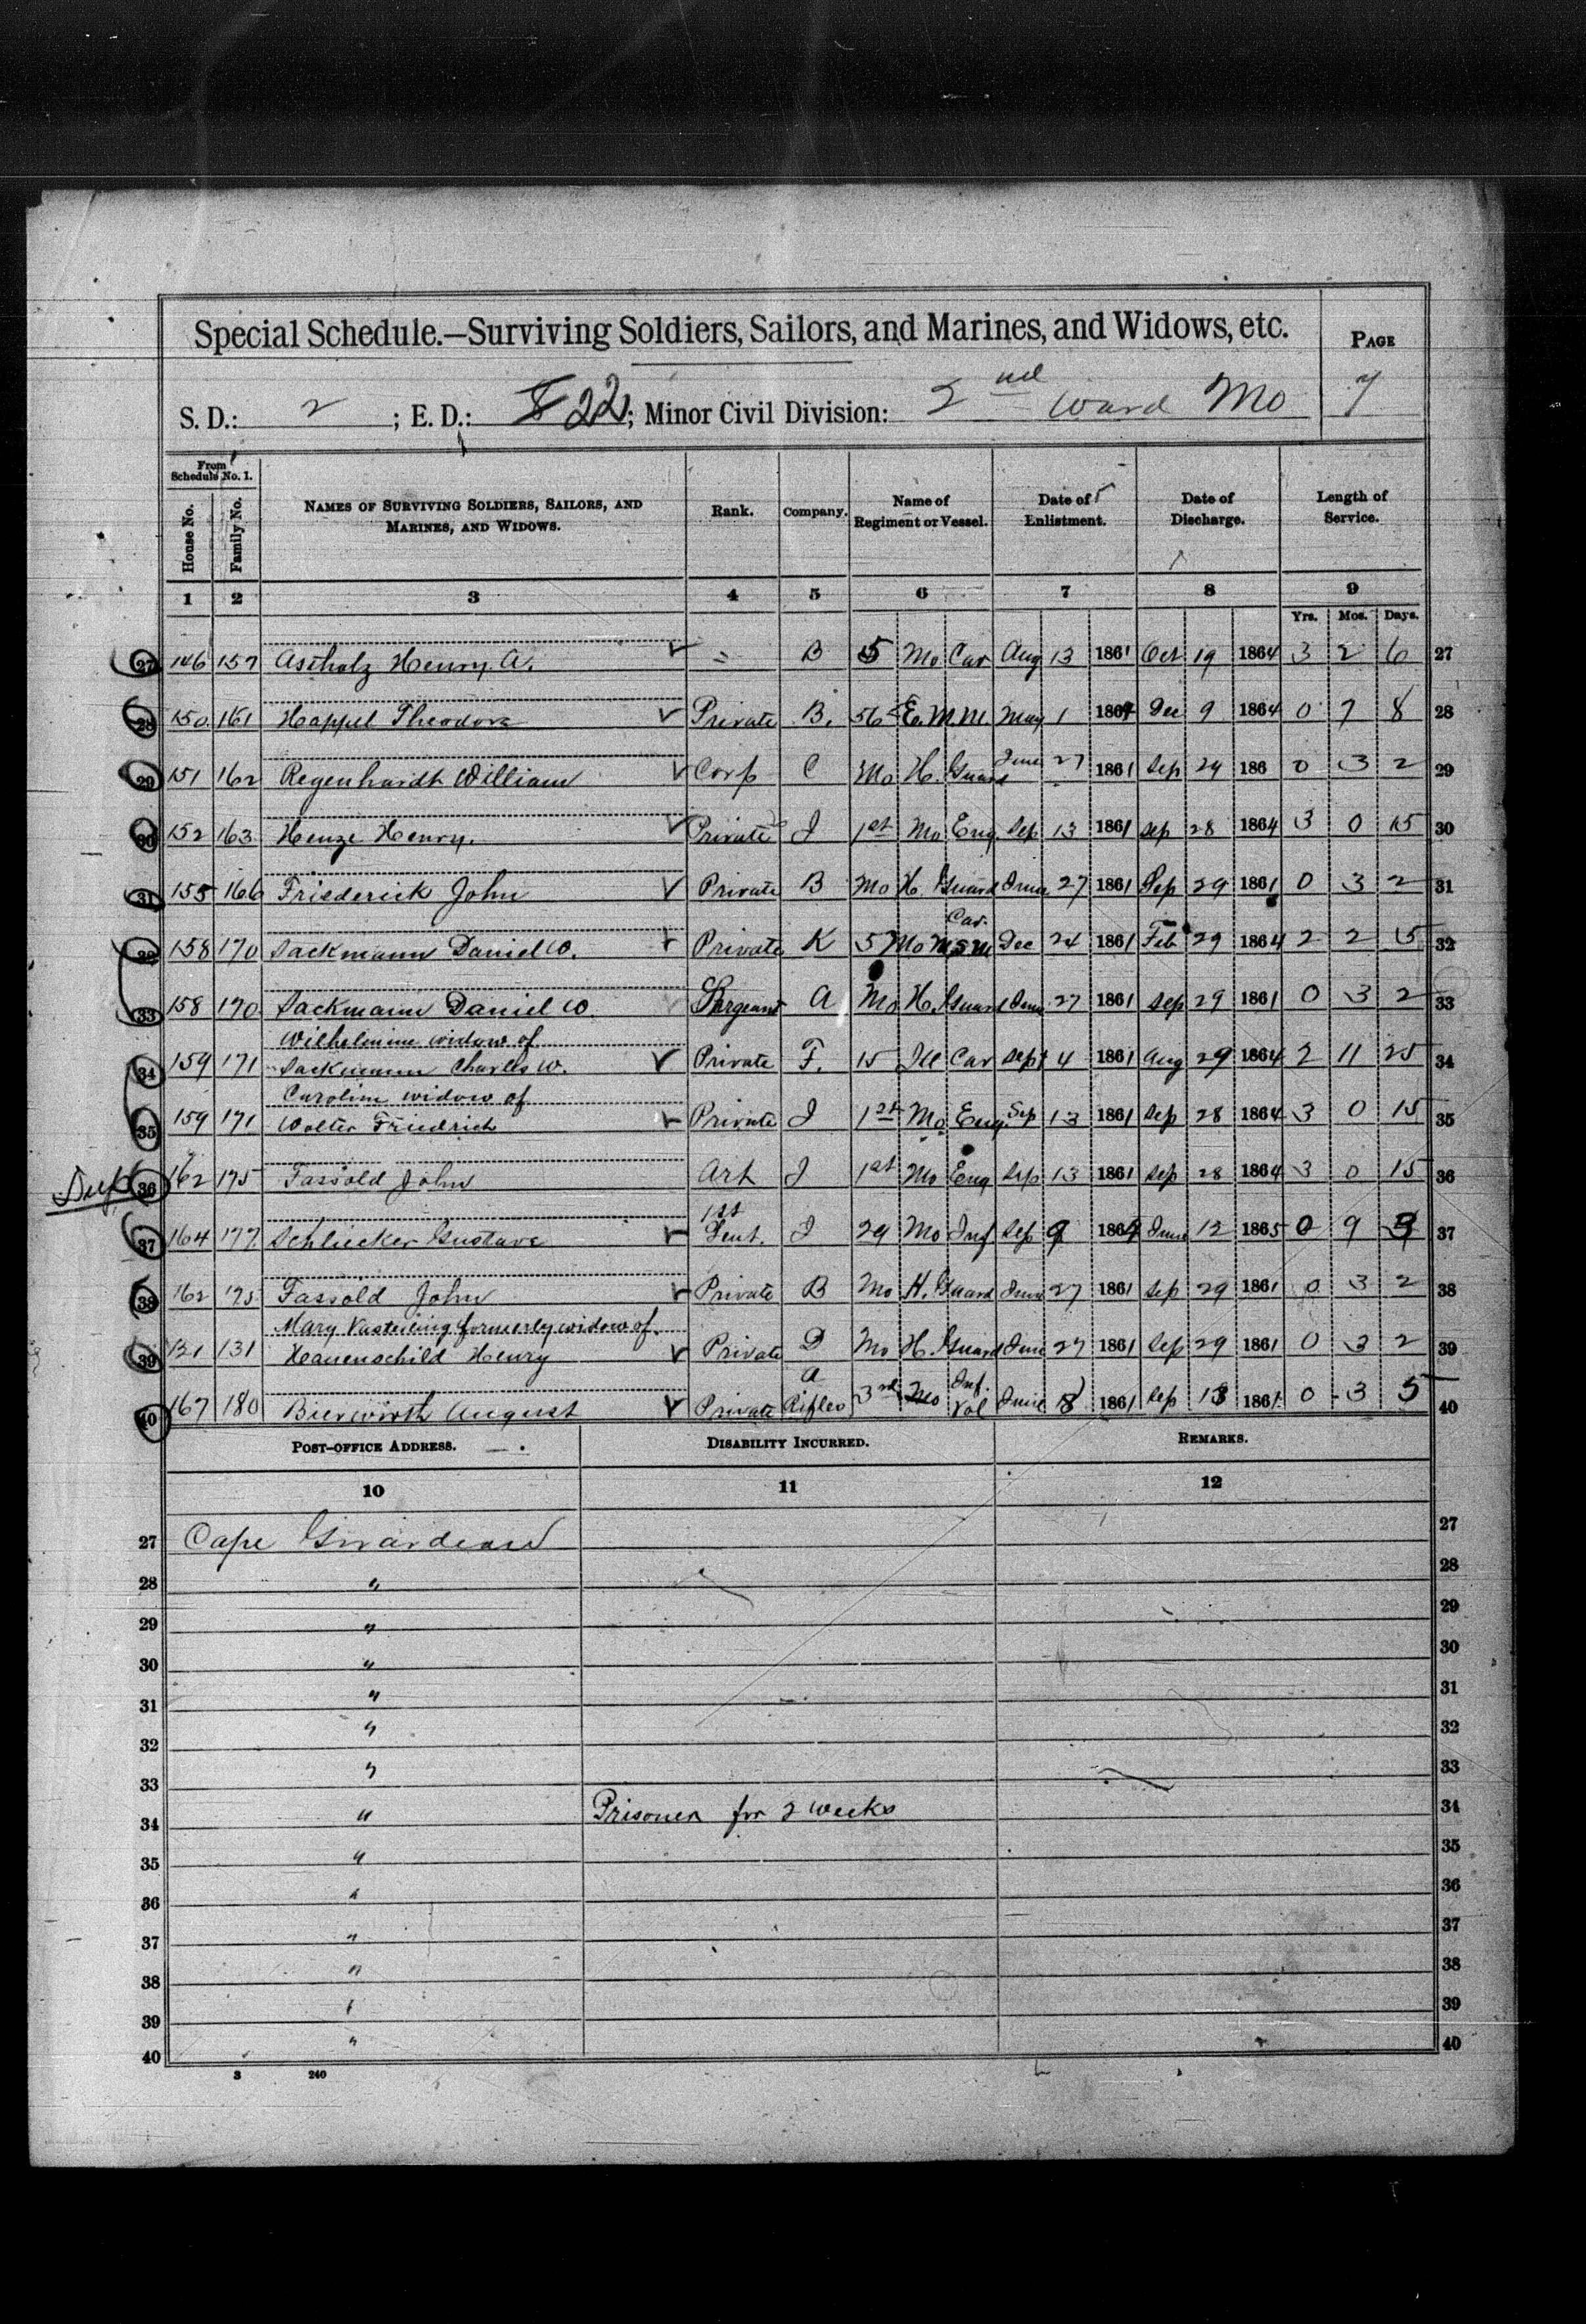 Special Schedule.—Surviving Soldiers, Sailors, and Marines, and Widows, etc.
PAGE
7
S. D.: 2 ; E. D.: 22 ; Minor Civil Division: 2nd Ward Mo
From Schedule No. 1.
House No. Family No. NAMES OF SURVIVING SOLDIERS, SAILORS, AND MARINES, AND WIDOWS. Rank. Company. Name of Regiment or Vessel. Date of Enlistment. Date of Discharge. Length of Service.
1 2 3 4 5 6 7 8 9
Yrs. Mos. Days.
27 146 157 Astholz Henry A. " B 5 Mo Cav Aug 13 1861 Oct 19 1864 3 2 6 27
28 150 161 Happel Theodore Private B. 56 E. M. M. May 1 1864 Dec 9 1864 0 7 8 28
29 151 162 Regenhardt William Corp C Mo H. Guard June 27 1861 Sep 29 186 0 3 2 29
30 152 163 Henze Henry. Private I 1st Mo Eng. Sep 13 1861 Sep 28 1864 3 0 15 30
31 155 166 Friederick John Private B Mo H. Guard June 27 1861 Sep 29 1861 0 3 2 31
32 158 170 Sackmann Daniel W. Private K 5 Mo M S M Cav. Dec 24 1861 Feb 29 1864 2 2 5 32
33 158 170 Sackmann Daniel W. Sergeant A Mo H. Guard June 27 1861 Sep 29 1861 0 3 2 33
Wilhelmine widow of
34 159 171 Sackmann Charles W. Private F. 15 Ill Cav Sept 4 1861 Aug 29 1864 2 11 25 34
Caroline widow of
35 159 171 Wolter Friedrich Private I 1st Mo Eng. Sep 13 1861 Sep 28 1864 3 0 15 35
Dup 36 162 175 Fassold John Art I 1st Mo Eng Sep 13 1861 Sep 28 1864 3 0 15 36
37 164 177 Schliecker Gustave 1st Leut. I 29 Mo Inf Sep 9 1864 June 12 1865 0 9 3 37
38 162 175 Fassold John Private B Mo H. Guard June 27 1861 Sep 29 1861 0 3 2 38
Mary Vasterling formerly widow of
39 131 131 Hauenschild Henry Private D Mo H. Guard June 27 1861 Sep 29 1861 0 3 2 39
40 167 180 Bierwirth August Private A Rifles 3rd Mo Inf. Vol June 8 1861 Sep 13 1861 0 3 5 40
POST-OFFICE ADDRESS. DISABILITY INCURRED. REMARKS.
10 11 12
27 Cape Girardeau 27
28 " 28
29 " 29
30 " 30
31 " 31
32 " 32
33 " 33
34 " Prisoner for 2 weeks 34
35 " 35
36 " 36
37 " 37
38 " 38
39 " 39
40 " 40
3 240